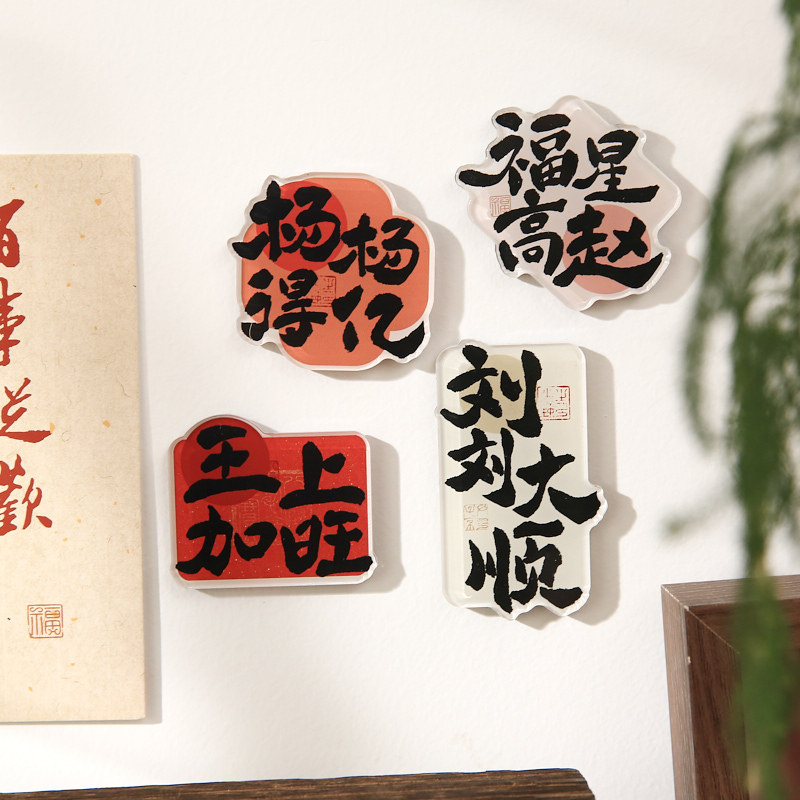 百
事
歡
福
杨杨
得亿
福星
高赵
王上
加旺
刘
刘大
顺